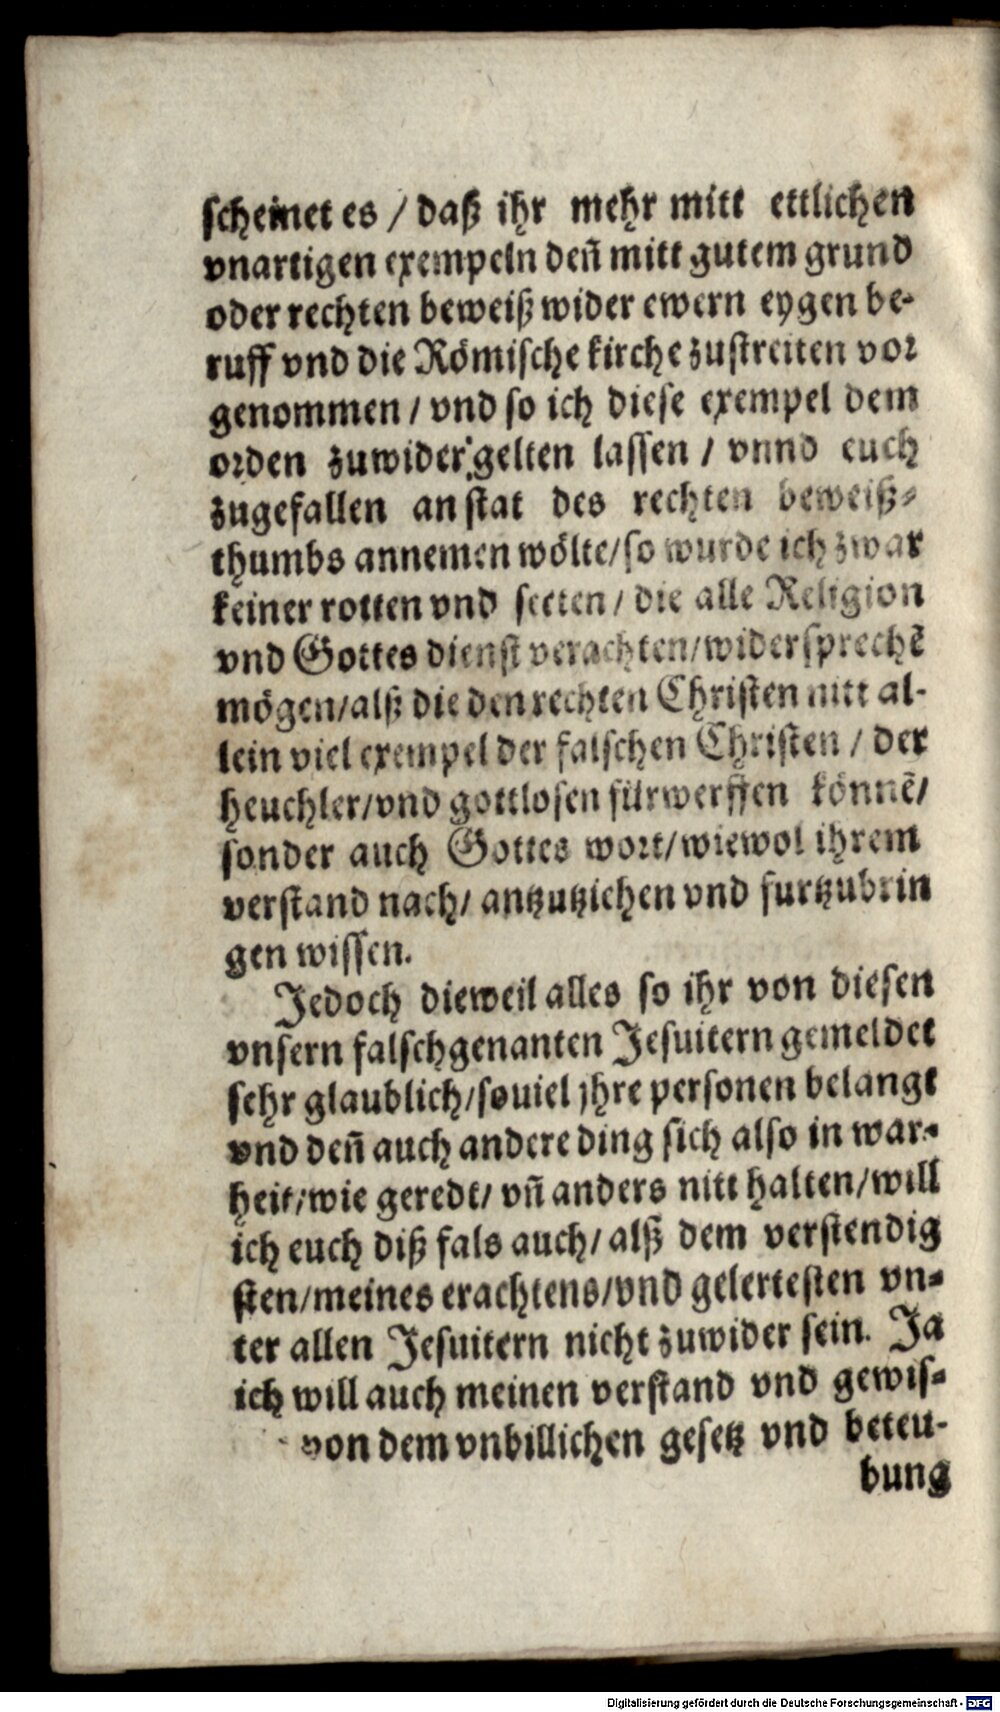 scheinet es / daß ihr mehr mitt ettlichen
vnartigen exempeln deñ mitt gutem grund
oder rechten beweiß wider ewern eygen be-
ruff vnd die Römische kirche zustreiten vor
genommen / vnd so ich diese exempel dem
orden zuwider gelten lassen / vnnd euch
zugefallen anstat des rechten beweiß-
thumbs annemen wölte/so wurde ich zwar
keiner rotten vnd secten / die alle Religion
vnd Gottes dienst verachten/widersprechẽ
mögen/alß die den rechten Christen nitt al-
lein viel exempel der falschen Christen / der
heuchler/vnd gottlosen fürwerffen könnẽ/
sonder auch Gottes wort/wiewol ihrem
verstand nach/ antzutziehen vnd furtzubrin
gen wissen.
Jedoch dieweil alles so ihr von diesen
vnsern falschgenanten Jesuitern gemeldet
sehr glaublich/souiel jhre personen belangt
vnd deñ auch andere ding sich also in war-
heit/wie geredt/ vñ anders nitt halten/will
ich euch diß fals auch/ alß dem verstendig
sten/meines erachtens/vnd gelertesten vn-
ter allen Jesuitern nicht zuwider sein. Ja
ich will auch meinen verstand vnd gewis-
von dem vnbillichen gesetz vnd beteu-
bung
Digitalisierung gefördert durch die Deutsche Forschungsgemeinschaft - DFG